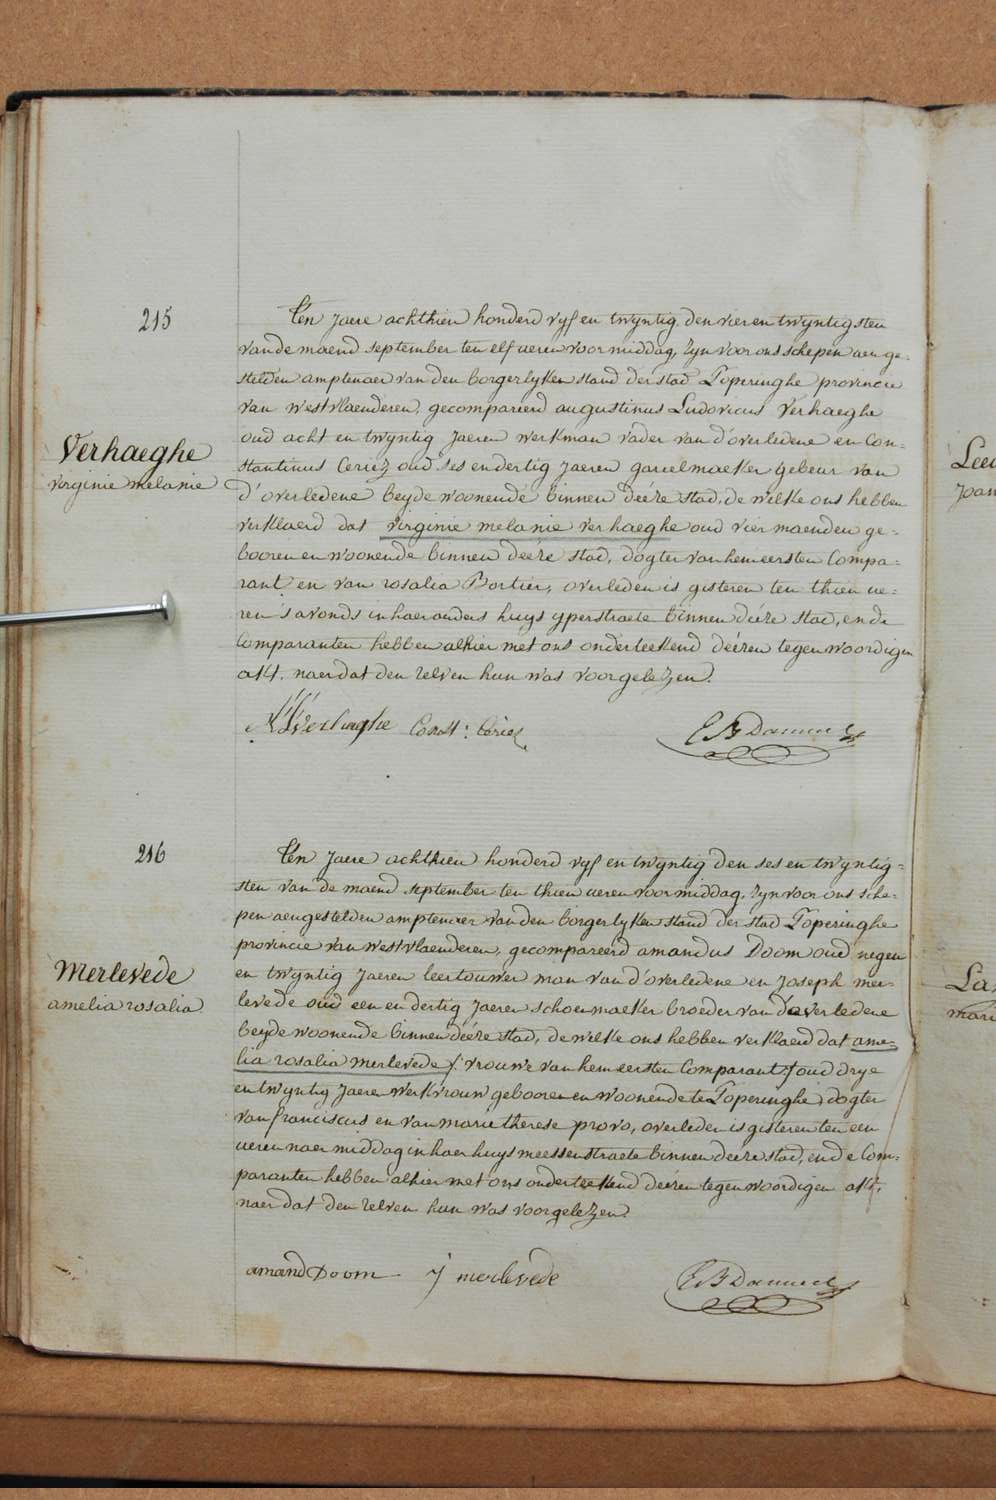 215
Verhaeghe
virginie melanie
Ten Jaere achthien honderd vyf en twyntig den vier en twyntigsten
van de maend september ten elf ueren voormiddag, zyn voor ons schepen aenge-
stelden amptenaer van den borgerlyken stand der stad Poperinghe provincie
van westvlaenderen, gecompareerd augustinus Ludovicus Verhaeghe
oud acht en twyntig Jaeren werkman vader van d'overledene en Con-
stantinus Ceriez oud ses en dertig Jaeren gareelmaeker gebeur van
d'overledene beyde woonende binnen deéze stad, de welke ons hebben
verklaerd dat virginie melanie verhaeghe oud vier maenden ge-
booren en woonende binnen deéze stad, dogter van hem eersten Compa-
rant en van rosalia Bortier, overleden is gisteren ten thien ue-
ren s'avonds in haer ouders huys yperstraete binnen deéze stad, en de
Comparanten hebben alhier met ons onderteekend deézen tegenwoordigen
akt, naer dat den zelven hun was voorgelezen.
Verhaeghe Const: Ceriez
216
Merlevede
amelia rosalia
Ten Jaere achthien honderd vyf en twyntig den ses en twyntig-
sten van de maend september ten thien ueren voormiddag, zyn voor ons sche-
pen aengestelden amptenaer van den borgerlyken stand der stad Poperinghe
provincie van westvlaenderen, gecompareerd amandus Doom oud negen
en twyntig Jaeren leertouwer man van d'overledene en Joseph mer-
levede oud een en dertig Jaeren schoenmaeker broeder van d'overledene
beyde woonende binnen deéze stad, de welke ons hebben verklaerd dat ame-
lia rosalia merlevede /: vrouwe van hem eersten Comparant :/ oud drye
en twyntig Jaere werkvrouw gebooren en woonende te Poperinghe, dogter
van franciscus en van marie therese provo, overleden is gisteren ten een
ueren naermiddag in haer huys meessenstraete binnen deeze stad, en de Com-
paranten hebben alhier met ons onderteekend deézen tegenwoordigen akt,
naer dat den zelven hun was voorgelezen.
amand Doom J merlevede